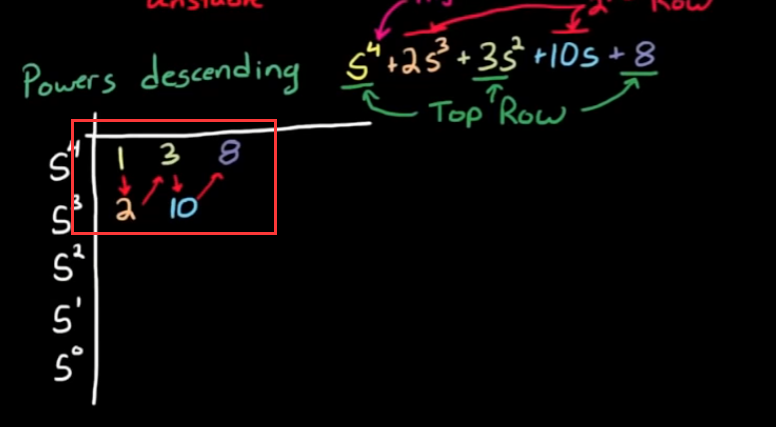 unstable
Row
Powers descending S⁴+2s³+3s²+10s+8
Top Row
S⁴ 1 3 8
S³ 2 10
S²
S¹
S⁰